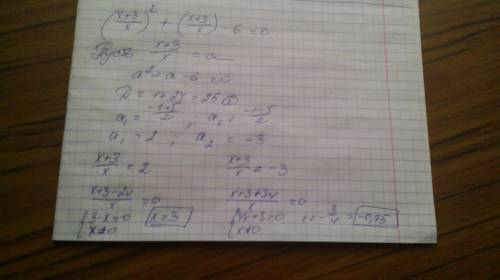 ((x+3)/x)² + ((x+3)/x) - 6 = 0
Пусть (x+3)/x = a
a² + a - 6 = 0
D = 1+24 = 25
a₁ = (-1+5)/2 ; a₂ = (-1-5)/2
a₁ = 2 ; a₂ = -3
(x+3)/x = 2   (x+3)/x = -3
(x+3-2x)/x = 0   (x+3+3x)/x = 0
{3-x=0   x=3   {4x+3=0   x=-3/4 = -0,75
x≠0   x≠0